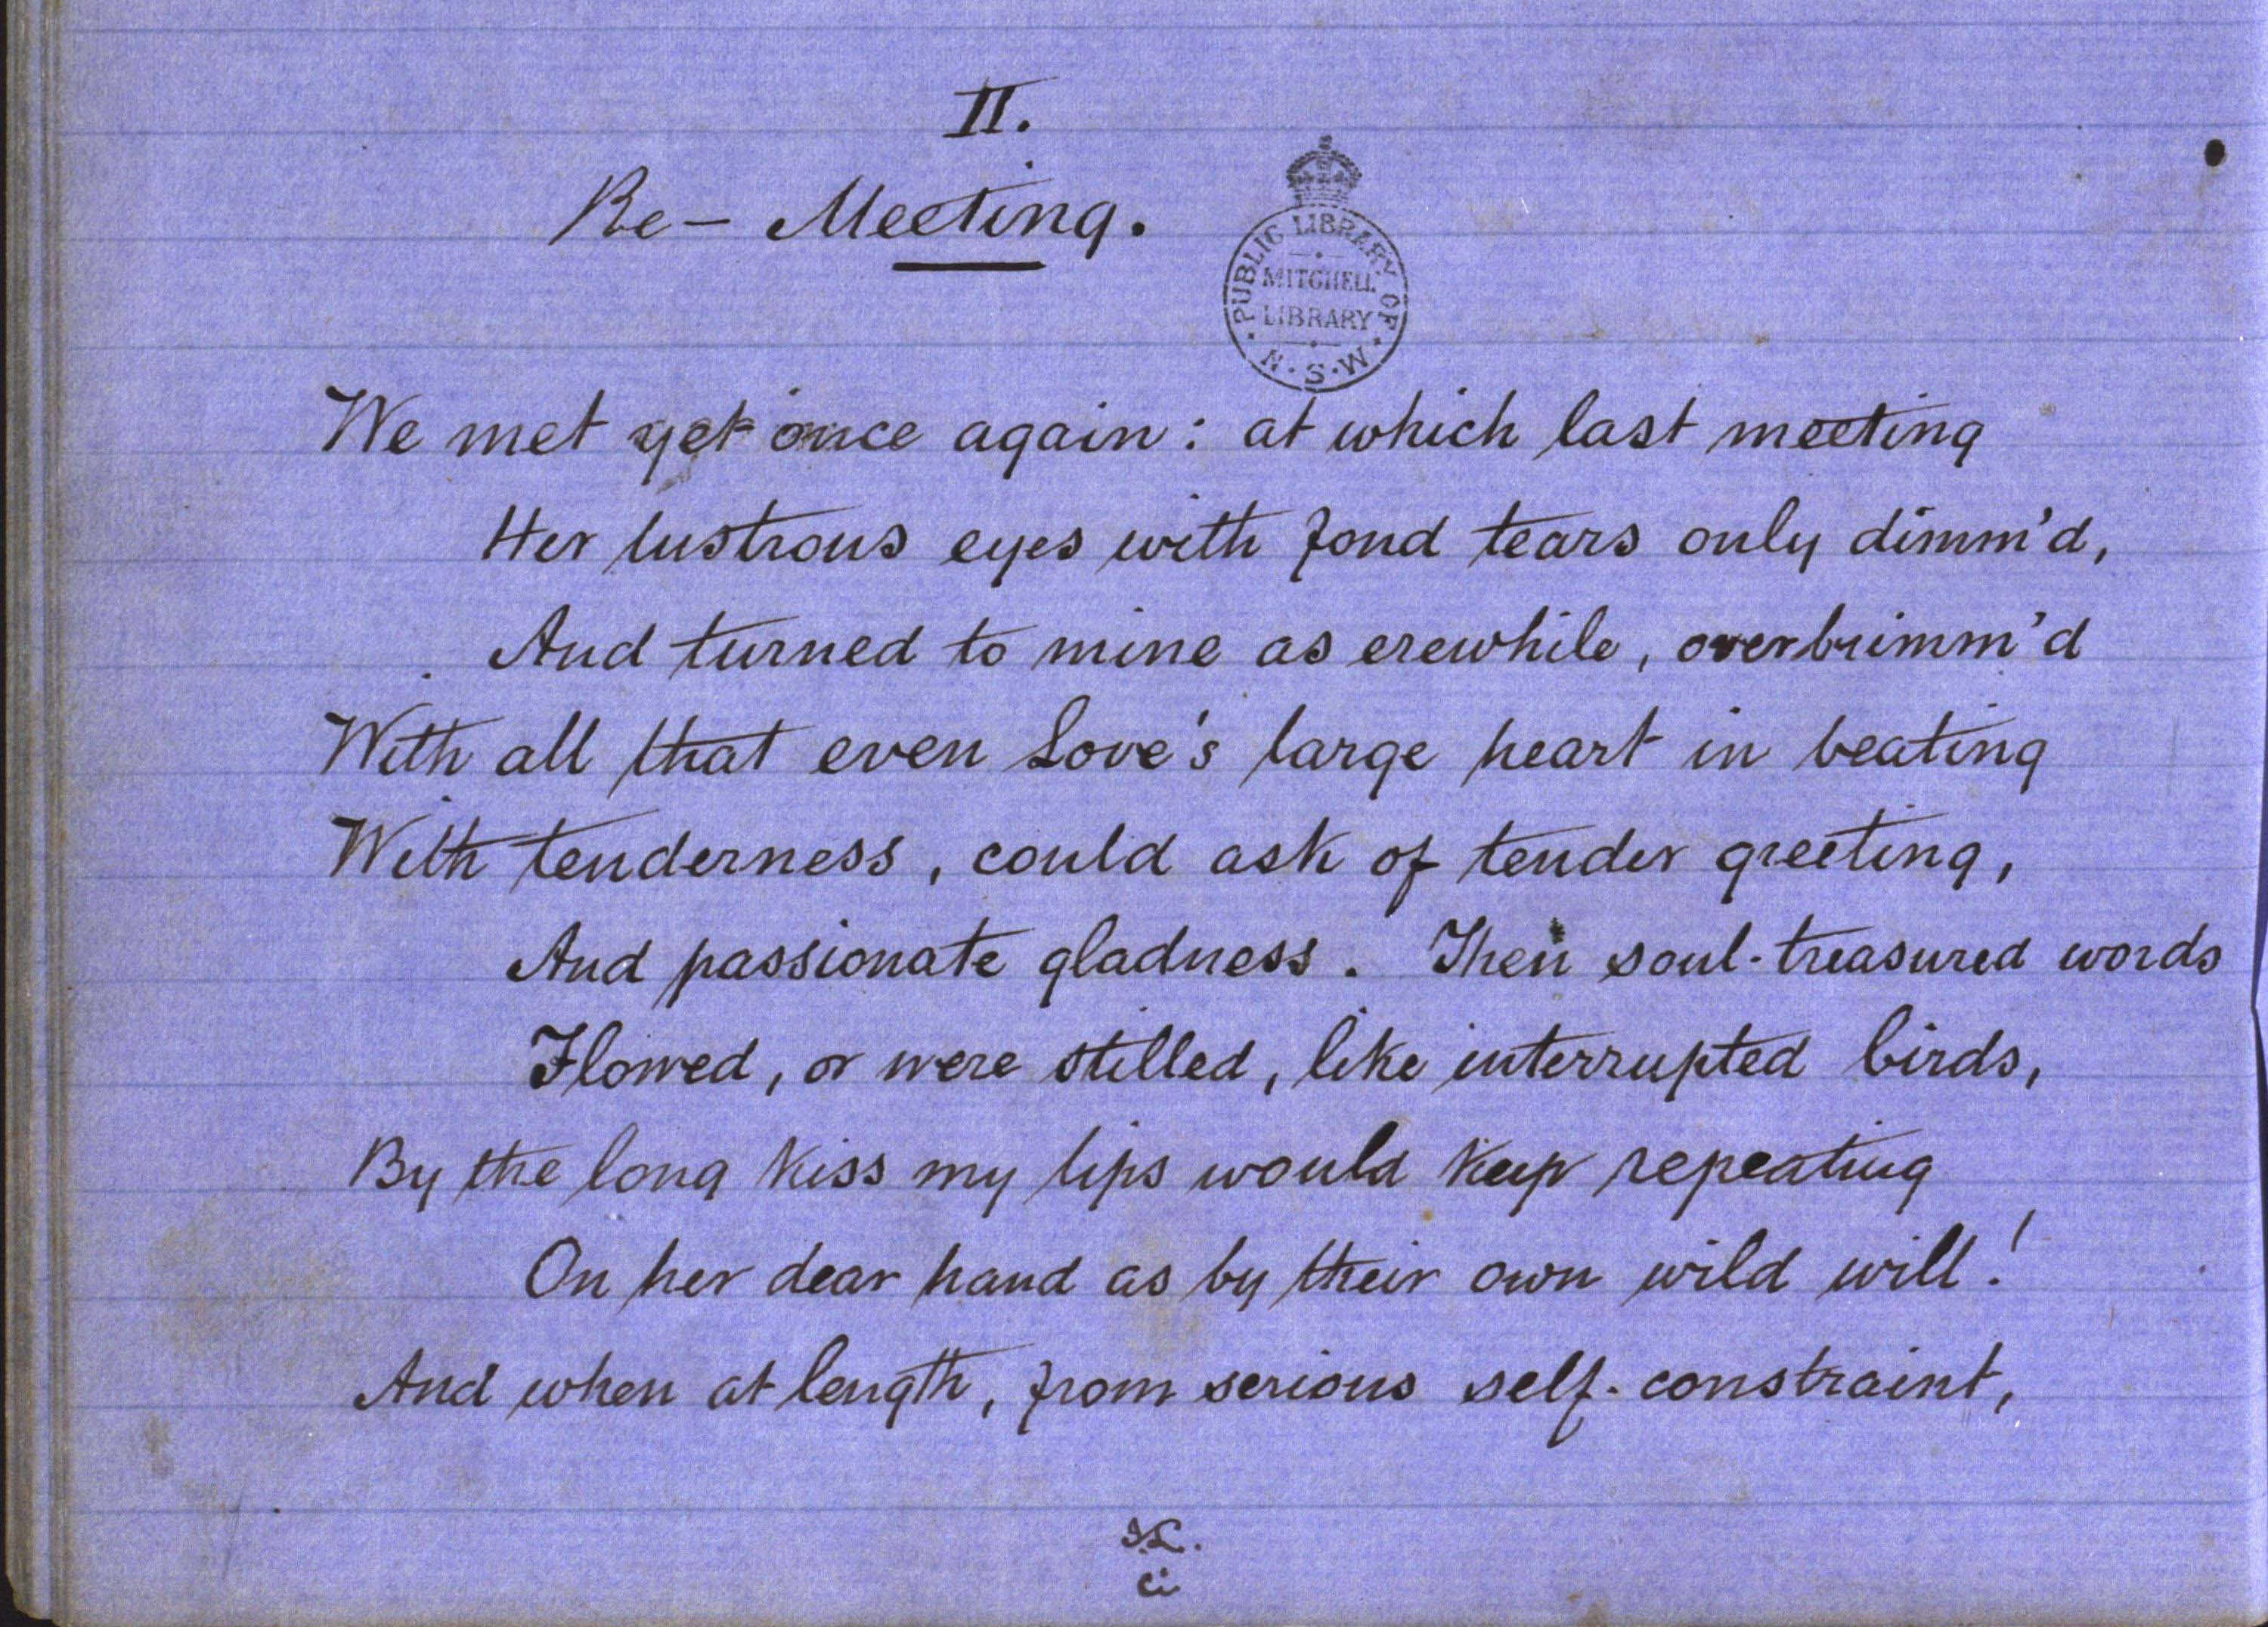 II.
Re- Meeting.
PUBLIC LIBRARY OF N.S.W.
MITCHELL
LIBRARY
We met yet once again: at which last meeting
Her lustrous eyes with fond tears only dimm'd,
And turned to mine as erewhile, overbrimm'd
With all that even Love's large heart in beating
With tenderness, could ask of tender greeting,
And passionate gladness. Then soul-treasured words
Flowed, or were stilled, like interrupted birds,
By the long kiss my lips would keep repeating
On her dear hand as by their own wild will!
And when at length, from serious self-constraint,